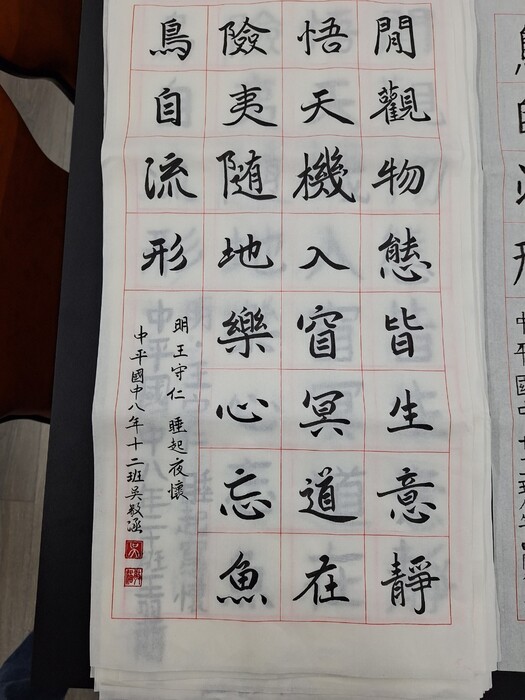 閒觀物態皆生意靜
悟天機入窅冥道在
險夷随地樂心忘魚
鳥自流形
明 王守仁 睡起夜懷
中平國中八年十二班吳